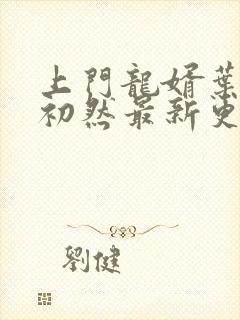 上門龍婿葉
初然最新更
劉健